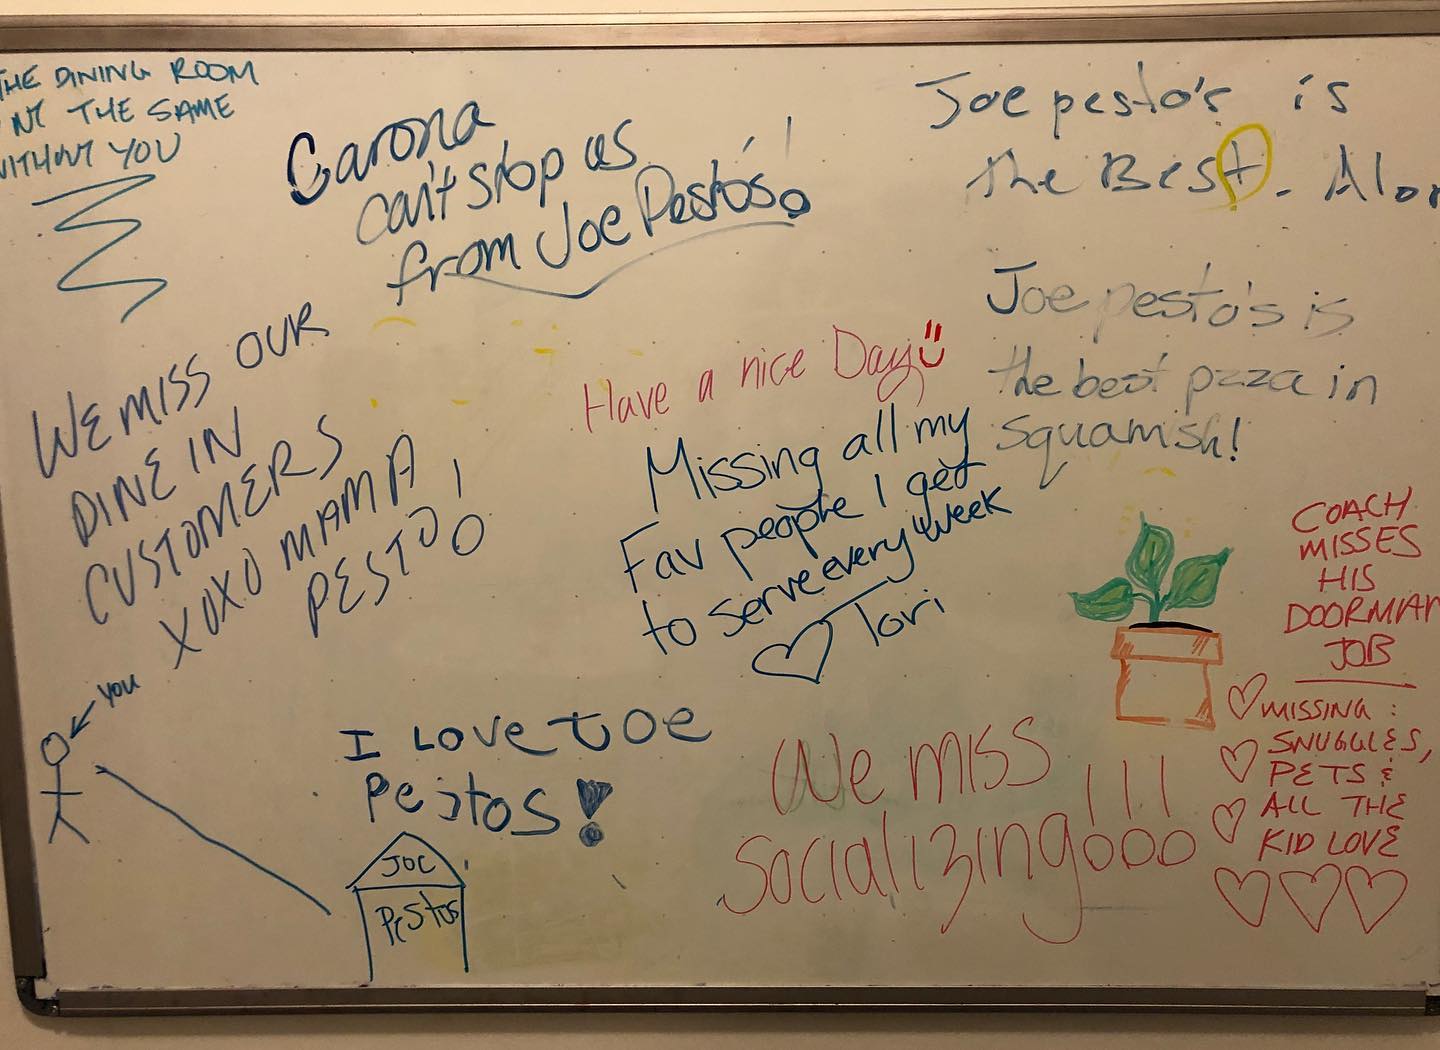 THE DINING ROOM
'NT THE SAME
WITHOUT YOU
Carona
can't stop us
from Joe Pesto's!
Joe pesto's is
the Best. Alor
Joe pesto's is
the best pzza in
Squamish!
WE MISS OUR
DINE IN
CUSTOMERS
XOXO MAMA
PESTO!
Have a nice Day
Missing all my
Fav people I get
to serve every week
Tori
COACH
MISSES
HIS
DOORMAN
JOB
MISSING:
SNUGGLES,
PETS &
ALL THE
KID LOVE
YOU
I LOVE JOE
Pestos!
JOE
PEStos
We miss
socializing!!!